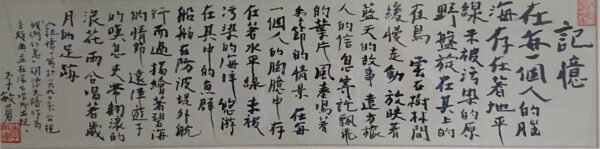 記憶
在每一個人的腦
海存在著地平
線未被污染的原
野盤旋在其上的
鳥 雲在樹林間
緩慢走動 放映著
藍天的故事 遠方旅
人的信息寄託飄飛
的葉片風奏鳴著
季節的情景 在每
一個人的胸臆中存
在著水平線未被
污染的海洋悠游
在其中的魚群
船舶在防波堤外航
行而過描繪著碧海
的情節 遠洋遊子
的嘆息夾帶翻滾的
浪花雨合唱著歲
月的足跡
李敏勇